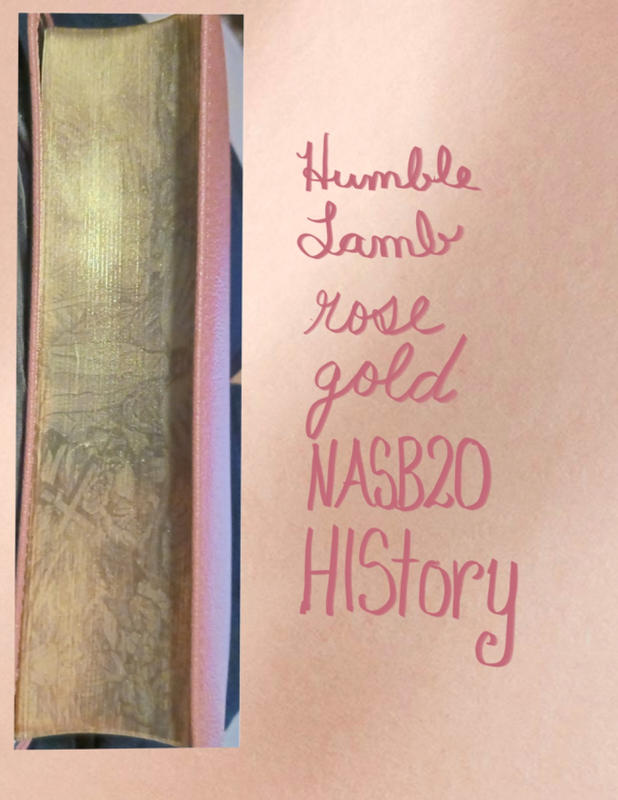 Humble
Lamb
rose
gold
NASB20
HIStory